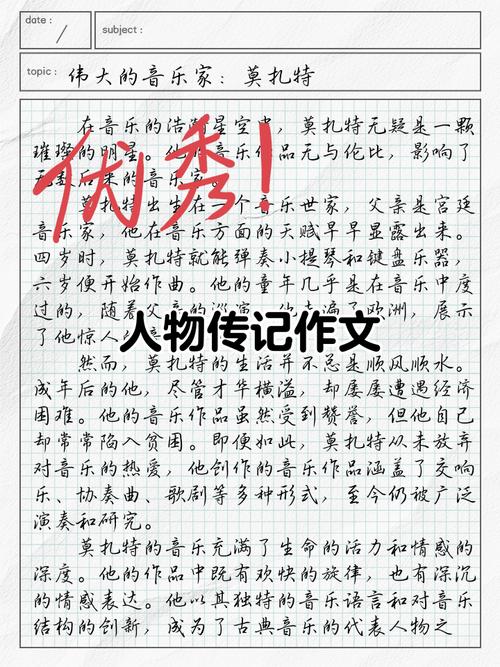 date:
subject:
topic: 伟大的音乐家：莫扎特
在音乐的浩瀚星空中，莫扎特无疑是一颗
璀璨的明星。他的音乐作品无与伦比，影响了
无数后来的音乐家。
优秀！
莫扎特出生在一个音乐世家，父亲是宫廷
音乐家，他在音乐方面的天赋早早显露出来。
四岁时，莫扎特就能弹奏小提琴和键盘乐器，
六岁便开始作曲。他的童年几乎是在音乐中度
过的，随着父亲的巡演，他走遍了欧洲，展示
了他惊人的音
人物传记作文
然而，莫扎特的生活并不总是顺风顺水。
成年后的他，尽管才华横溢，却屡屡遭遇经济
困难。他的音乐作品虽然受到赞誉，但他自己
却常常陷入贫困。即便如此，莫扎特从未放弃
对音乐的热爱，他创作的音乐作品涵盖了交响
乐、协奏曲、歌剧等多种形式，至今仍被广泛
演奏和研究。
莫扎特的音乐充满了生命的活力和情感的
深度。他的作品中既有欢快的旋律，也有深沉
的情感表达。他以其独特的音乐语言和对音乐
结构的创新，成为了古典音乐的代表人物之